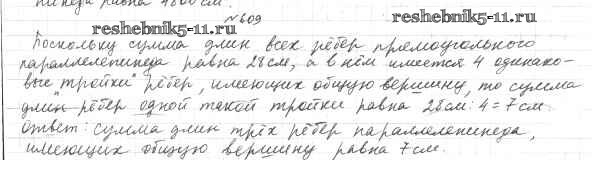 пипеда равна 4800 см.
reshebnik5-11.ru
reshebnik5-11.ru
№609
Поскольку сумма длин всех рёбер прямоугольного
параллелепипеда равна 28 см, а в нём имеется 4 одинако-
вые "тройки" рёбер, имеющих общую вершину, то сумма
длин рёбер одной такой тройки равна 28 см : 4 = 7 см.
Ответ: сумма длин трёх рёбер параллелепипеда,
имеющих общую вершину равна 7 см.